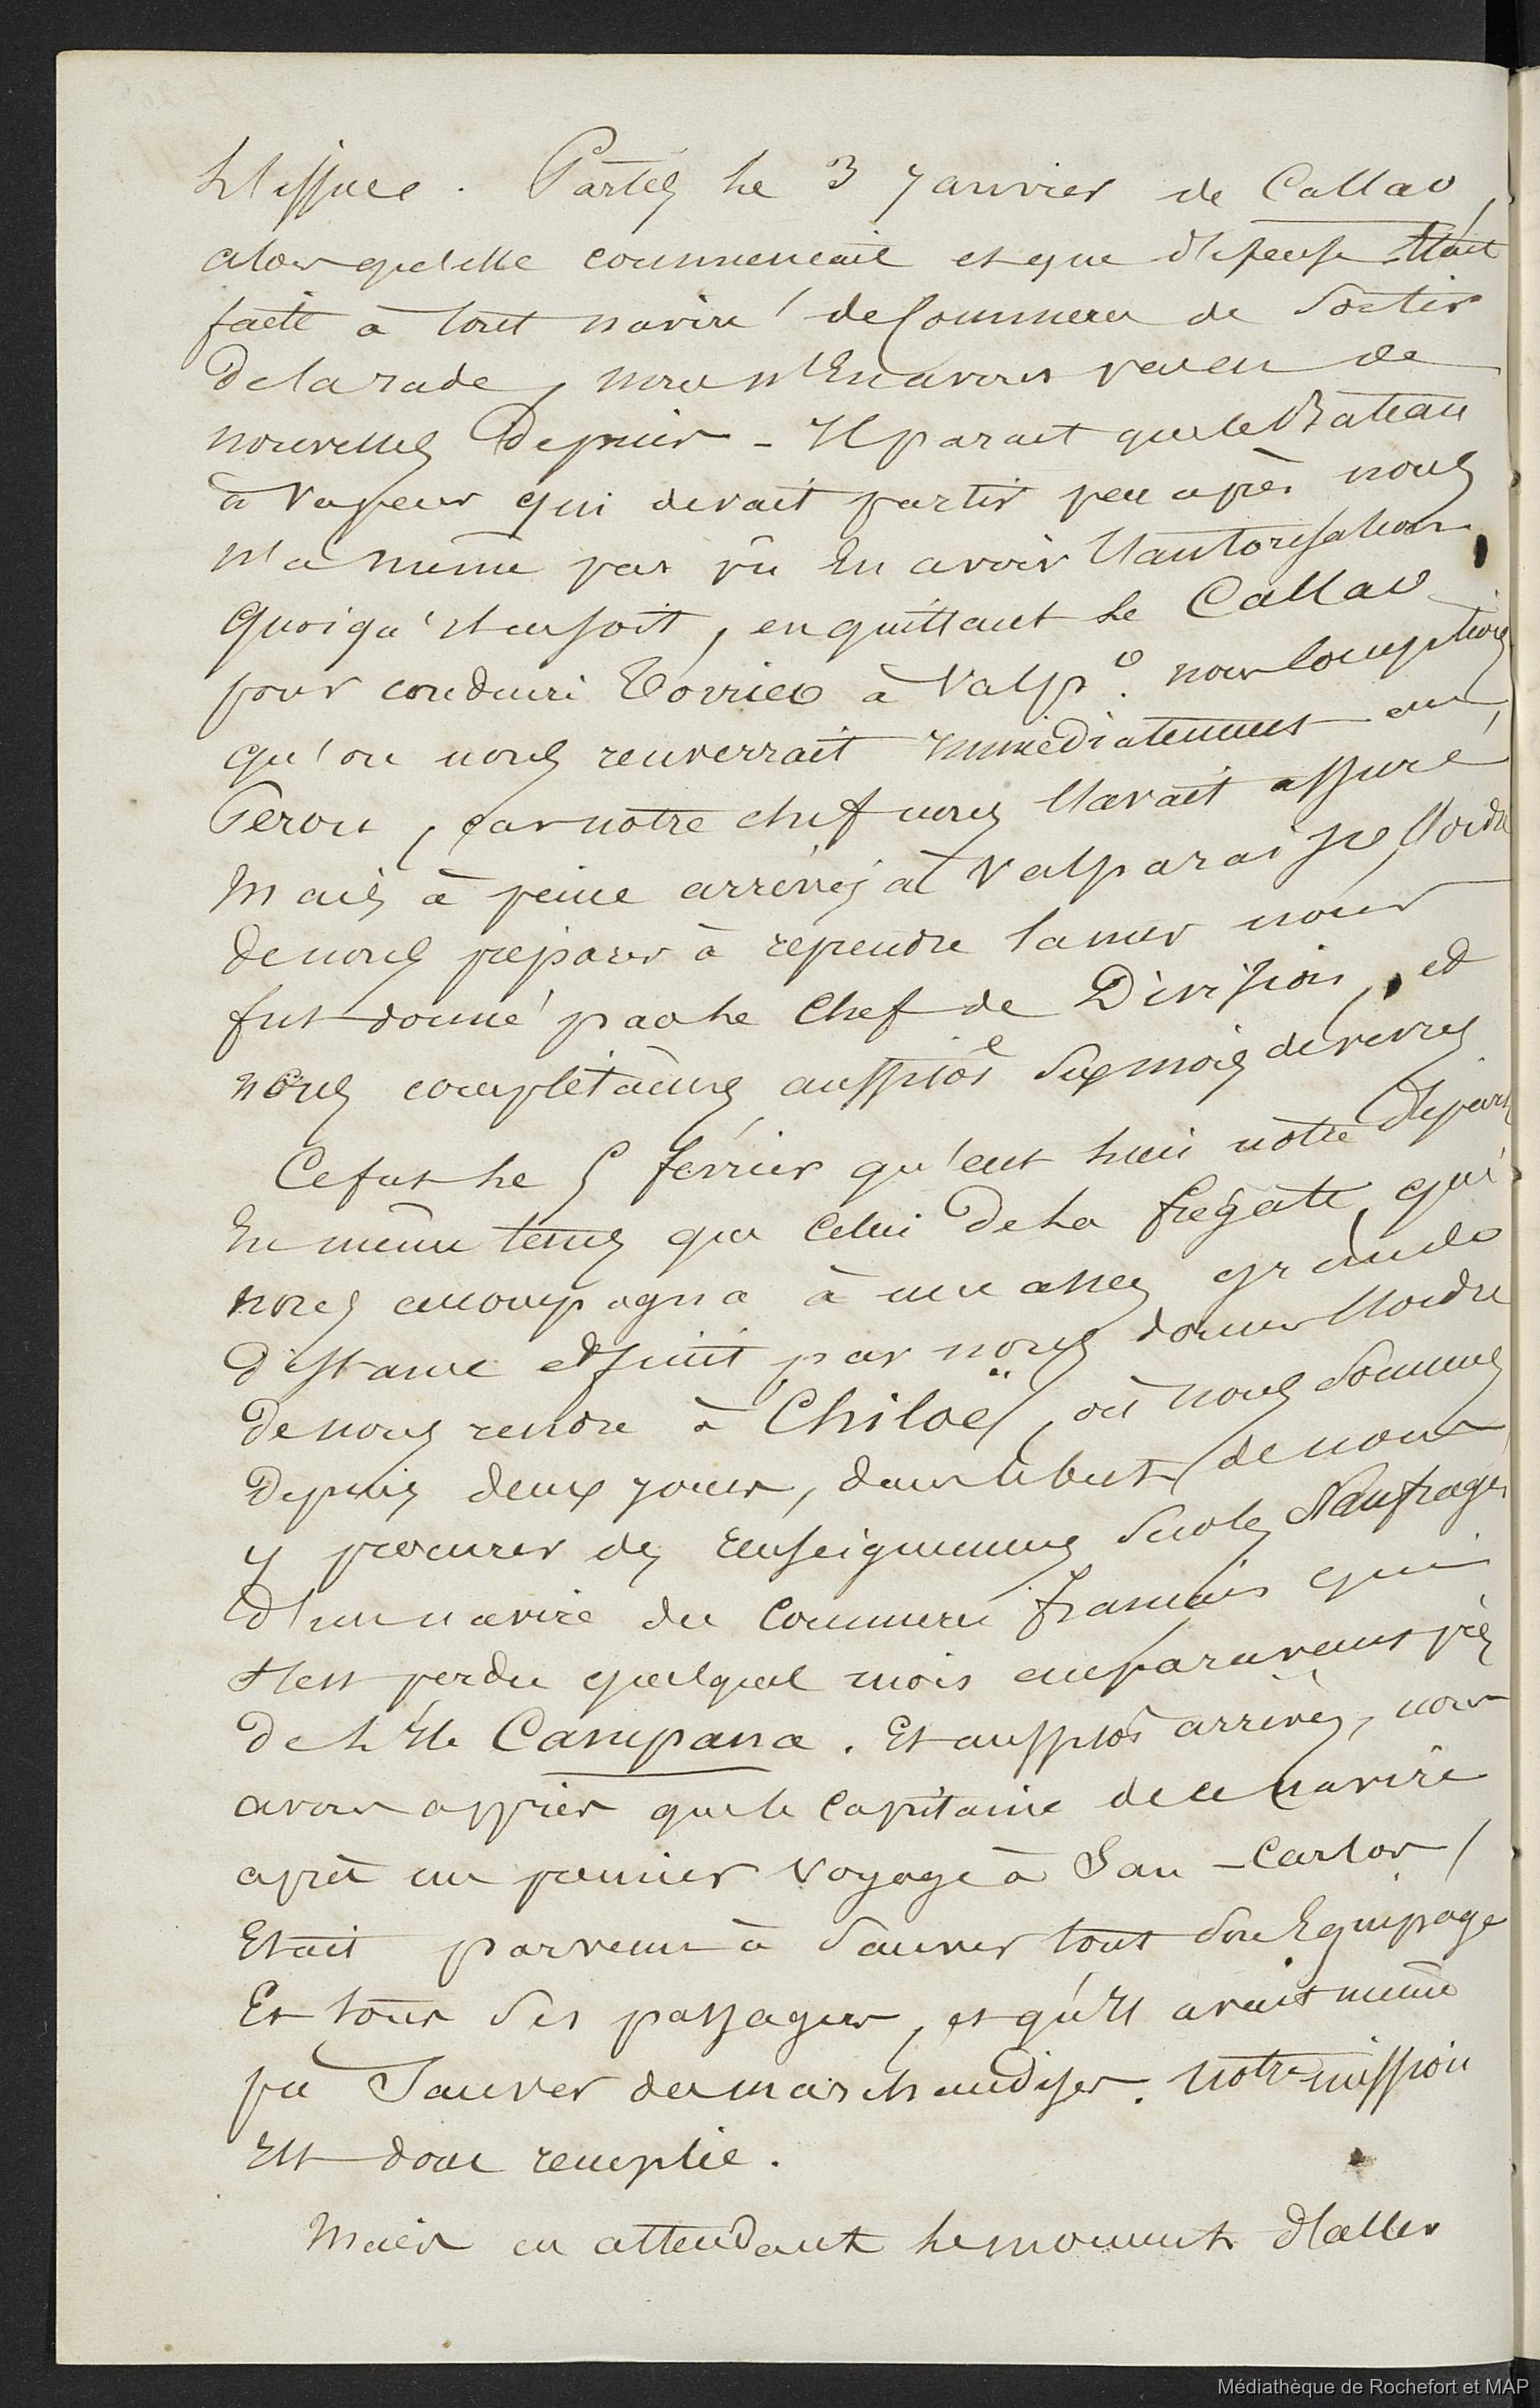 L'issue. Partis le 3 Janvier de Callao,
alors qu'elle commencait et que défense était
faite à tout navire de Commerce de Sortir
De la rade, nous n'En avons reçu de
nouvelles Depuis - Il parait que le Bateau
à Vapeur qui devait partir peu après nous
n'a même pas pû En avoir l'autorisation
Quoiqu'il en soit, en quittant le Callao
pour conduire Torrico à Valpo. nous Comptions
qu'on nous renverrait Immédiatement au
Pérou, car notre chef nous l'avait assuré,
Mais à peine arrivés à Valparaiso, l'ordre
de nous préparer à reprendre la mer nous
fut donné par le Chef de Division, et
nous complétâmes aussitôt Six mois de vivres
Ce fut le 5 février qu'eut lieu notre Départ
En même tems que Celui De La frégate, qui
nous accompagna à une assez grande
Distance et finit par nous donner l'ordre
De nous rendre à Chiloë, où nous Sommes
Depuis deux jours, dans le but de nous
y procurer des Renseignemens Sur les Naufragés
D'un navire du Commerce français qui
s'est perdu quelques mois auparavant près
De L'Ile Campana. Et aussitôt arrivés, nous
avons appris que le Capitaine de ce navire
après un premier Voyage à San-Carlos,
Etait parvenu à Sauver tout Son Equipage
Et tous Ses passagers, et qu'Il avait même
pû Sauver des marchandises. Notre mission
Est donc remplie.
Mais en attendant le moment d'aller
Médiathèque de Rochefort et MAP